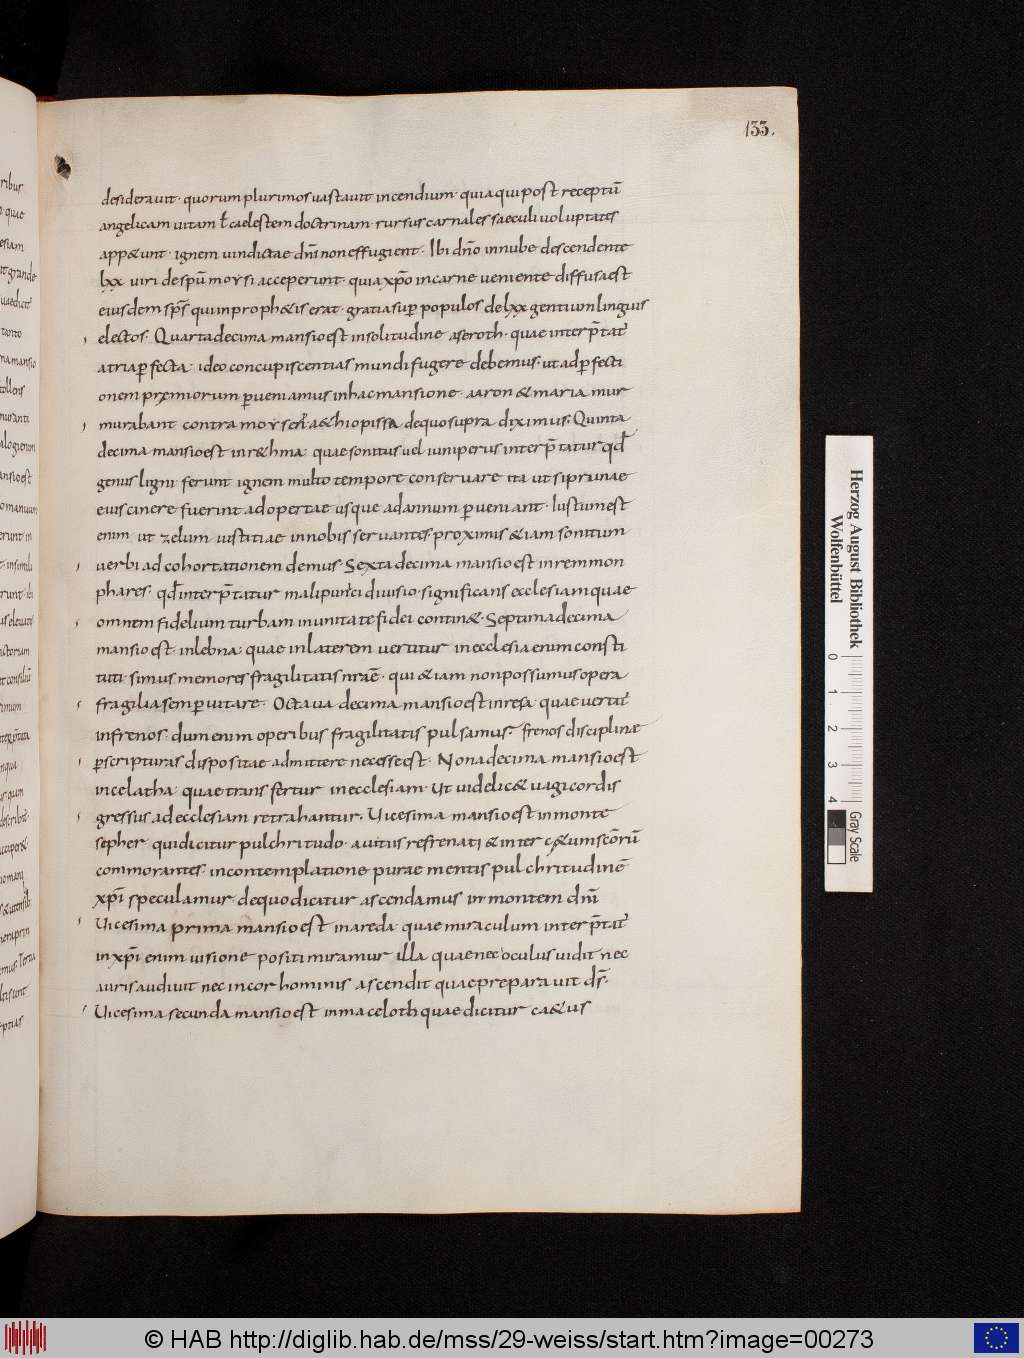 133.
desiderauit · quorum plurimos uastauit incendium · quia qui post receptū
angelicam uitam ł caelestem doctrinam · rursus carnales saeculi uoluptates
app&unt · ignem uindictae dn̄i non effugient · Ibi dn̄o in nube descendente
lxx uiri de sp̄u moysi acceperunt · quia xp̄o in carne ueniente diffusa est
eiusdem sp̄s qui in proph&is erat · gratia sup̱ populos de lxx gentium linguis
electos · Quarta decima mansio est in solitudine aseroth · quae interp̄tat̄
atria p̱fecta · ideo concupiscentias mundi fugere debemus · ut ad p̱fecti
onem p̄miorum p̱ueniamus in hac mansione · aaron & maria mur
murabant contra moysen a&hiopissa de quo supra diximus · Quinta
decima mansio est in r&hma · quae sonitus uel iuniperus interp̄tatur qđ
genus ligni ferunt ignem multo tempore conseruare ita ut si prunae
eius cinere fuerint adopertae usque ad annum p̱ueniant · Iustum est
enim ut zelum iustitiae in nobis seruantes proximis &iam sonitum
uerbi ad cohortationem demus · Sexta decima mansio est in remmon
phares · qđ interp̄tatur mali punici diuisio · significans ecclesiam quae
omnem fidelium turbam in unitate fidei contin& · Septima decima
mansio est · in lebna quae in laterem uertitur in ecclesia enim consti
tuti · simus memores fragilitatis nr̄ae · qui &iam non possumus opera
fragilia semp̱ uitare · Octaua decima mansio est in resa quae uertit̄
in frenos · dum enim operibus fragilitatis pulsamus · frenos disciplinæ
p̱ scripturas dispositae admittere necesse est · Nona decima mansio est
in celatha quae transfertur in ecclesiam · Ut uidelic& uagi cordis
gressus ad ecclesiam retrahantur · Uicesima mansio est in monte
sepher qui dicitur pulchritudo · a uitiis refrenati & inter c&um sc̄orū
commorantes · in contemplatione purae mentis pulchritudinē
xp̄i speculamur de quo dicatur ascendamus in montem dn̄i
Uicesima prima mansio est in areda quae miraculum interp̄tat̄
in xp̄i enim uisione positi miramur illa quae nec oculus uidit nec
auris audiuit nec in cor hominis ascendit quae preparauit ds̄ ·
Uicesima secunda mansio est in maceloth quae dicitur ca&us
Herzog August Bibliothek
Wolfenbüttel
0 1 2 3 4
Gray Scale
© HAB http://diglib.hab.de/mss/29-weiss/start.htm?image=00273